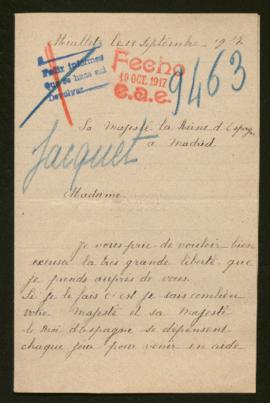 le 11 Septembre 1917
Pedir informes
que se hace así
Devolver
Fecho
19 OCT. 1917
e.a.e.
9463
Sa Majesté la Reine d'Espagne
a Madrid
Jacquet
Madame
Je vous prie de vouloir bien
excuser la très grande liberté que
je prends auprès de vous.
Si je le fais c'est je sais combien
votre Majesté et sa Majesté
le Roi d'Espagne se dépensent
chaque jour pour venir en aide